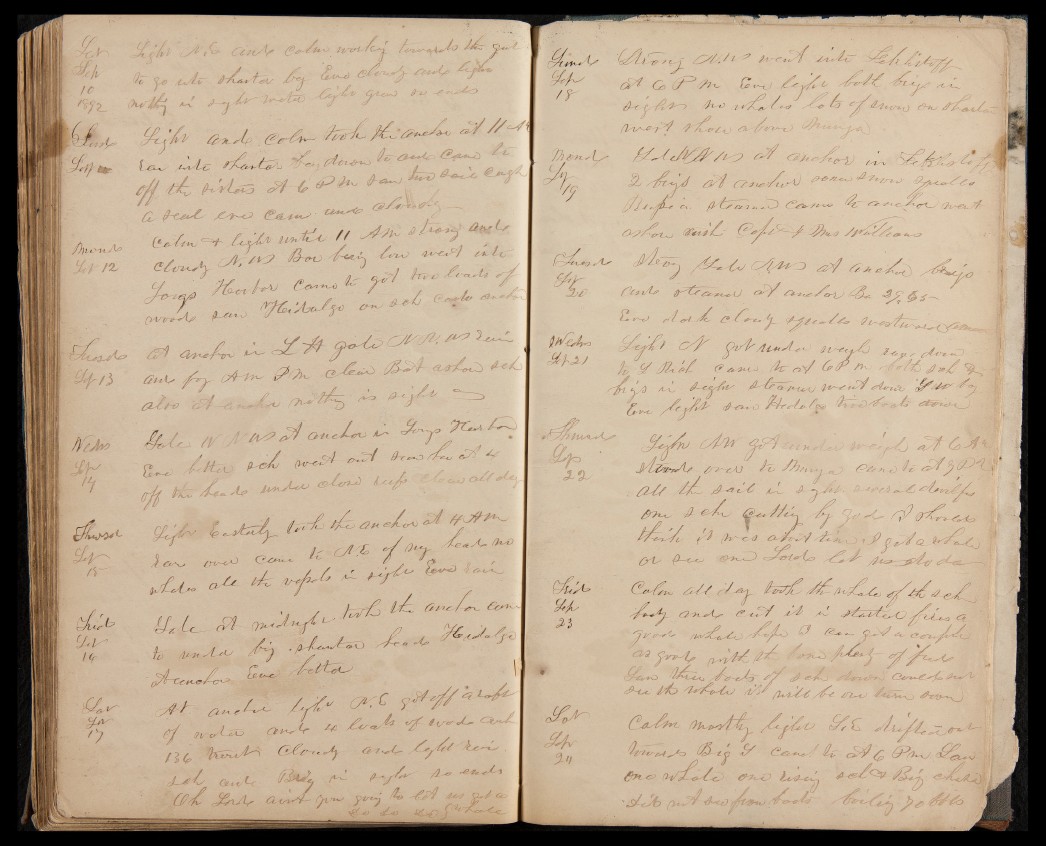 Sat Light N.E. and calm working towards the
Sep to go into shantar bay Eve cloudy and light
10
1892 nothing in sight water light gren so ends
Sund Light and calm took the anchor at 11 AM
Sep ran into shantar bay down to and came to
off the sisters at 6 PM saw two sail caught
a seal eve came cloudy
Mond Calm & light until 11 AM strong and
Sep 12 cloudy N.W Bar being low went into
Jorgs Harbor came to got two loads of
wood saw Heidalgo on sch anchor
Tuesd At anchor in gale N.N.W rain
Sep 13 and fog AM PM clear Boat ashore sch
also at anchor nothing in sight
Weds Gale N N W at anchor in Jorgs Harbor
Sep Eve better sch went out saw her at 4
14 off the heads under close reefs clear all day
Thursd Light Easterly took the anchor at 4 AM
Sep ran over came to N.E of my head no
15 whales all the vessels in sight Eve rain
Frid Gale at midnight took the anchor came
Sep to under big shantar head Heidalgo
16 At anchor Eve better
Sat At anchor light N.E got off a raft
Sep of water and 10 boats of wood and
17 136 trout cloudy and light rain
sch and Brig in sight so ends
Oh Lord aint you going to let us get a
whale
Sund Strong N.W went into
Sep At 6 PM Eve light both brigs in
18 sight no whales lots of snow on shantar
west shore above Munga
Mond Gale NNW at anchor in
Sep 2 brigs at anchor some snow squalls
19 Russian steamer came to anchor went
ashore with Capt & Mrs Williams
Tuesd Strong Gale NW at anchor brigs
Sep and steamer at anchor Ba
20 Eve dark cloudy squalls westward
Weds Light N got under weigh down
Sep 21 came to at 6 PM both sch &
brigs in sight steamer went down
Eve light saw Hedalgo two boats down
Thursd Light NW got under weigh at 6 AM
Sep stood over to Munga came to at 9 PM
22 all the sail in sight several devils
one sch cutting by god I should
think it was about time I got a whale
or see one Lords let us do
Frid Calm all day took the whale of the sch
Sep body and cut it in started fires a
23 good whale hope I can get a couple
as good with the bone plenty of fuel
Saw three boats of sch down could not
see the whale will be our turn soon
Sat Calm mostly light S.E drifted out
Sep towards Big came to at 6 PM Saw
24 one whale one rising sch & Brig chased
did not see from boats boiling 70 bbls